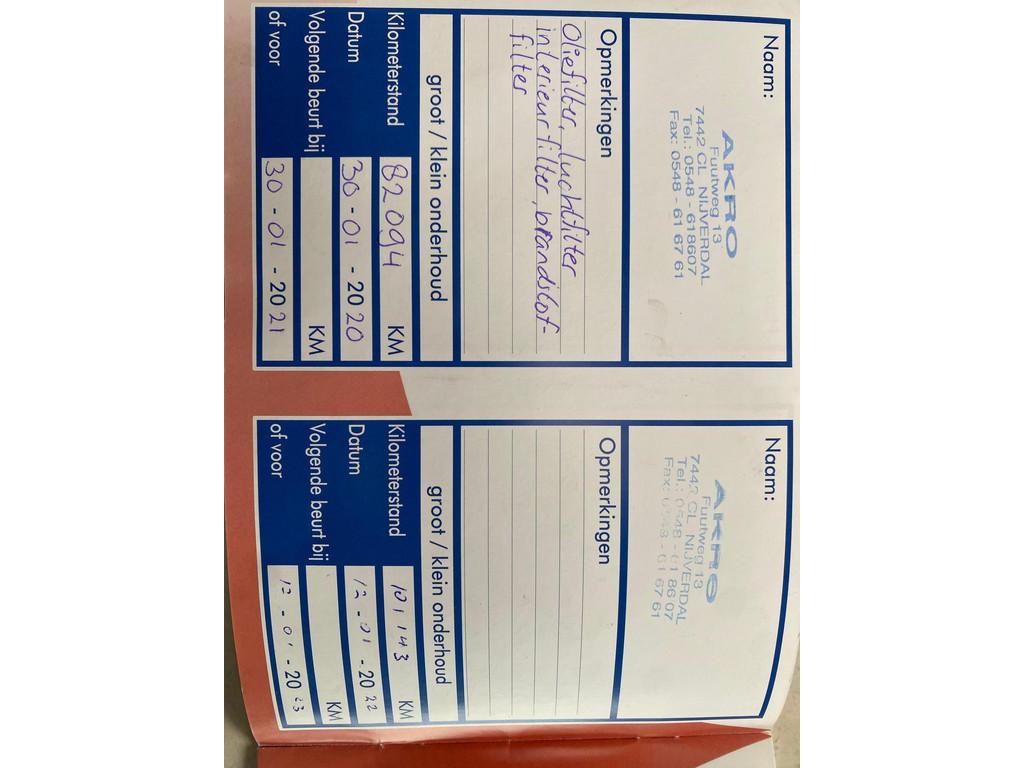 Naam:
AKRO
Fuutweg 13
7442 CL NIJVERDAL
Tel.: 0548 - 618607
Fax: 0548 - 61 67 61
Opmerkingen
Oliefilter, luchtfilter
interieurfilter, brandstof-
filter
groot / klein onderhoud
Kilometerstand 82094 KM
Datum 30 - 01 - 2020
Volgende beurt bij KM
of voor 30 - 01 - 2021
Naam:
AKRO
Fuutweg 13
7442 CL NIJVERDAL
Tel.: 0548 - 61 86 07
Fax: 0548 - 61 67 61
Opmerkingen
groot / klein onderhoud
Kilometerstand 101143 KM
Datum 12 - 01 - 2022
Volgende beurt bij KM
of voor 12 - 01 - 2023